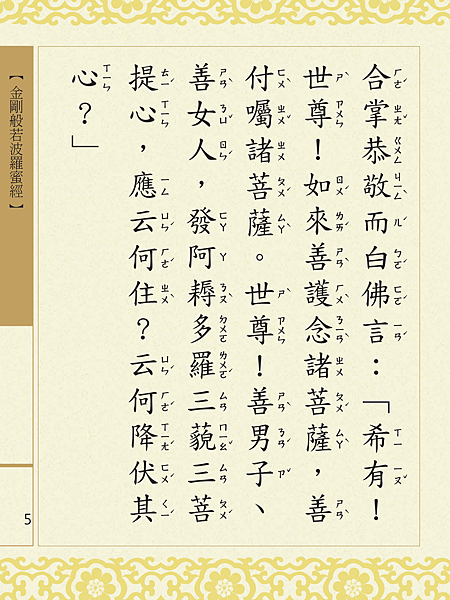 合掌恭敬而白佛言：「希有！
世尊！如來善護念諸菩薩，善
付囑諸菩薩。世尊！善男子、
善女人，發阿耨多羅三藐三菩
提心，應云何住？云何降伏其
心？」
【金剛般若波羅蜜經】
5